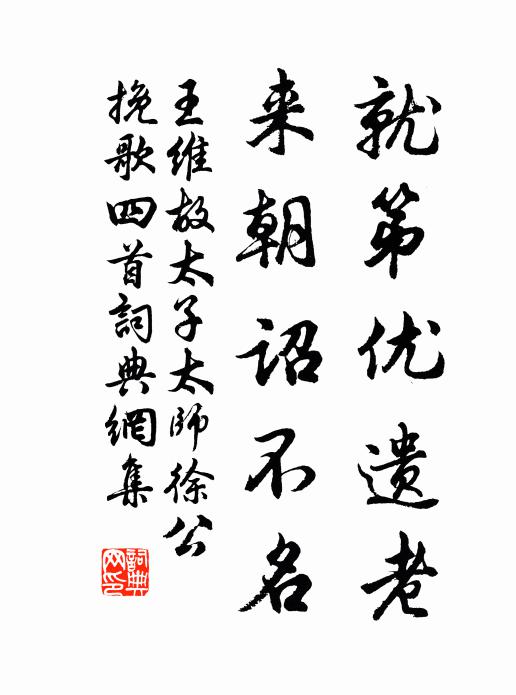 就第优遗老
来朝诏不名
王维故太子太师徐公
挽歌四首詞典網集
詞典网印